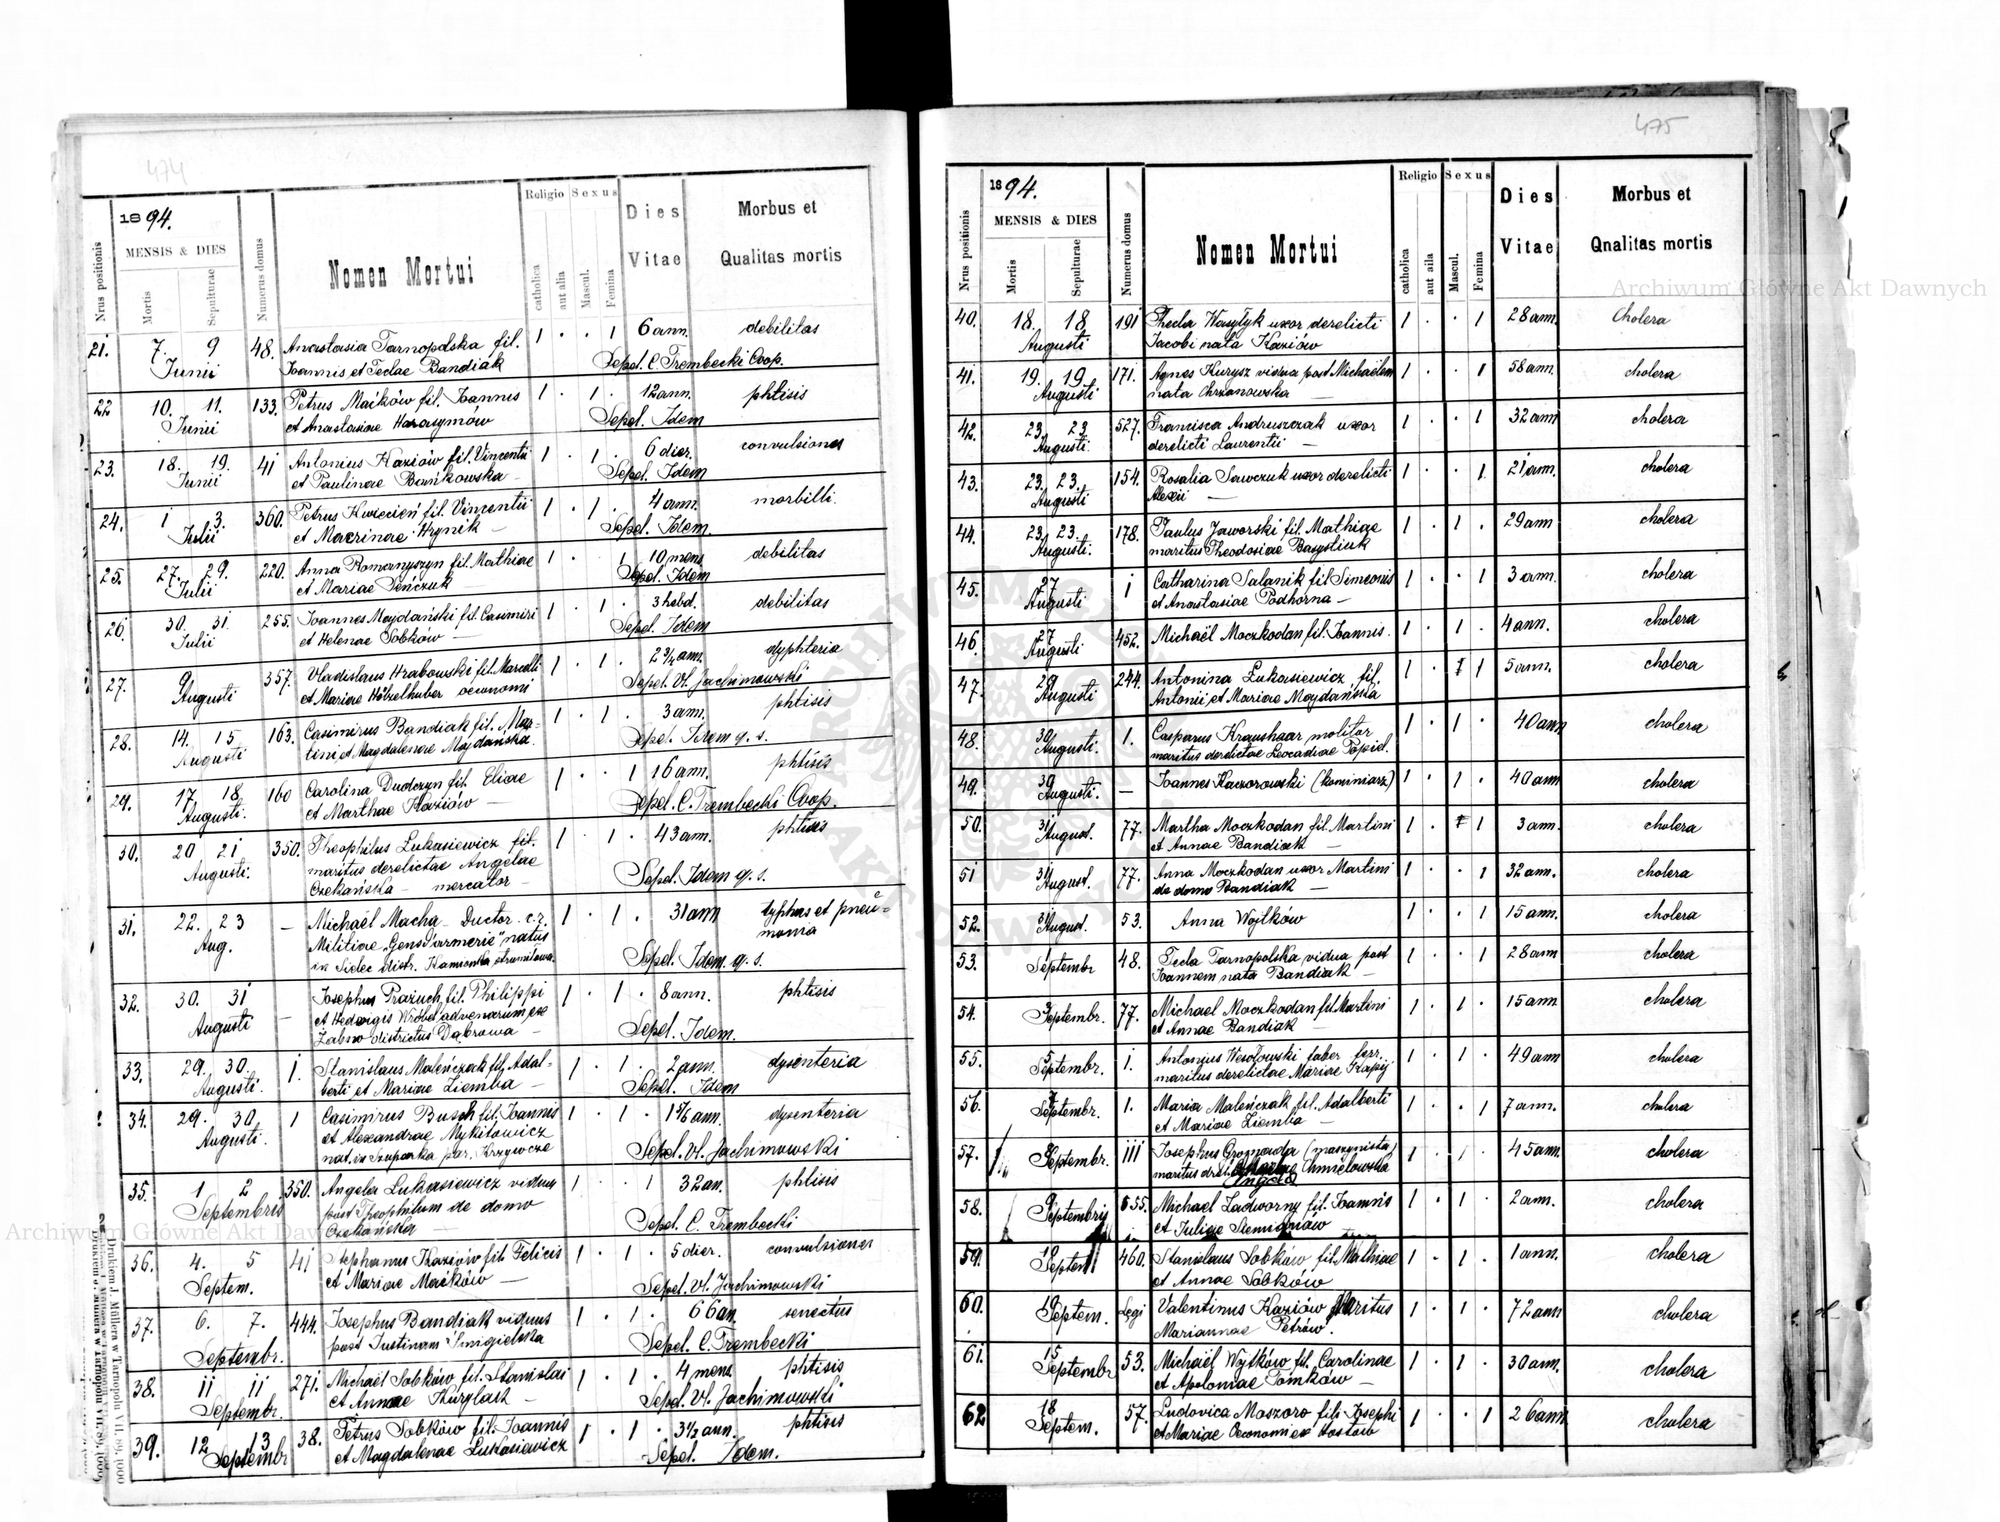 474
1894.
MENSIS & DIES
Nrus positionis
Mortis
Sepulturae
Numerus domus
Nomen Mortui
Religio
Sexus
catholica
aut alia
Mascul.
Femina
Dies
Vitae
Morbus et
Qualitas mortis
21. 7. 9 48. Anastasia Tarnopolska fil. 1 . . 1 6 ann. debilitas
Junii Joannis et Teclae Bandiak Sepel. C. Trembecki Coop.
22 10. 11. 133. Petrus Maćków fil. Joannis 1 . 1 . 12 ann. phtisis
Junii et Anastasiae Harasymów Sepel. Idem
23. 18. 19. 41 Antonius Kaziów fil. Vincentii 1 . 1 . 6 dier. convulsiones
Junii et Paulinae Bańkowska Sepel. Idem
24. 1 3. 360. Petrus Kwiecień fil. Vincentii 1 . 1 . 4 ann. morbilli
Julii et Macrinae Hrynik Sepel. Idem.
25. 27. 29. 220. Anna Romanyszyn fil. Mathiae 1 . . 1 10 mens. debilitas
Julii et Mariae Sepel. Idem
26. 30. 31. 255. Joannes Majdański fil. Casimiri 1 . 1 . 3 hebd. debilitas
Julii et Helenae Sobków Sepel. Idem
27. Augusti 357. Vladislaus Hrabowski fil. Marcelli 1 . 1 . 2 3/4 ann. dyphteria
et Mariae Hötzelhuber oeconomi Sepel. Vl. Jachimowski
28. 14. 15 163. Casimirus Bandiak fil. Mar- 1 . 1 . 3 ann. phtisis
Augusti tini et Magdalenae Majdańska. Sepel. Idem q. s.
29. 17 18 160 Carolina Dudczyn fil. Eliae 1 . . 1 16 ann. phtisis
Augusti. et Marthae Kaziów Sepel. C. Trembecki Coop.
30. 20 21 350. Theophilus Lukasiewicz fil. 1 . 1 . 43 ann. phtisis
Augusti. maritus derelictae Angelae
Czekańska mercator Sepel. Idem q. s.
31. 22. 23 Michaël Macha Ductor c. r. 1 . 1 . 31 ann typhus et pneu-
Aug. Militiae "Gens d'armerie" natus monia
in Sielec distr. Kamionka strumiłowa. Sepel. Idem. q. s.
32. 30. 31 Josephus Prażuch fil. Philippi 1 . 1 . 8 ann. phtisis
Augusti et Hedvigis Wróbel advenarum ex
Żabno districtus Dąbrowa Sepel. Idem.
33. 29. 30. 1. Stanislaus Maleńczak fil. Adal- 1 . 1 . 2 ann. dysenteria
Augusti. berti et Mariae Ziemba Sepel. Idem
34. 29. 30. 1 Casimirus Busch fil. Joannis 1 . 1 . ann. dysenteria
Augusti. et Alexandrae Mykitowicz
nat. in Szuparka par. Krzywcze Sepel. Vl. Jachimowski
35. 1 2 350. Angela Lukasiewicz vidua 1 . . 1 32 an. phtisis
Septembris post Theophilum de domo
Czekańska Sepel. C. Trembecki
36. 4. 5 41 Stephanus Kaziów fil. Felicis 1 . 1 . 5 dier. convulsiones
Septem. et Mariae Maćków Sepel. Vl. Jachimowski
37. 6. 7. 444. Josephus Bandiak viduus 1 . 1 . 66 an. senectus
Septembr. post Justinam Smigielska Sepel. C. Trembecki
38. 11 11 271. Michaël Sobków fil. Stanislai 1 . 1 . 4 mens. phtisis
Septembr. et Annae Kurylak Sepel. Vl. Jachimowski
39. 12 13 38. Petrus Sobków fil. Joannis 1 . 1 . 3 1/2 ann. phtisis
Septembr et Magdalenae Lukasiewicz Sepel. Idem.
475
1894.
MENSIS & DIES
Nrus positionis
Mortis
Sepulturae
Numerus domus
Nomen Mortui
Religio
Sexus
catholica
aut aila
Mascul.
Femina
Dies
Vitae
Morbus et
Qnalitas mortis
40. 18. 18 191 Thecla Wasyłyk uxor derelicti 1 . . 1 28 ann. Cholera
Augusti Jacobi nata Kaziów
41. 19. 19. 171. Agnes Kurysz vidua post Michaëlem 1 . . 1 58 ann. cholera
Augusti nata Chrzanowska
42. 23. 23 527. Francisca Andruszczak uxor 1 . . 1 32 ann cholera
Augusti. derelicti Laurentii
43. 23. 23. 154. Rosalia Sawczuk uxor derelicti 1 . . 1. 21 ann. cholera
Augusti Alexii
44. 23. 23. 178. Paulus Jaworski fil. Mathiae 1 . 1 . 29 ann cholera
Augusti. maritus Theodosiae Basystiuk
45. 27 1 Catharina Salanik fil. Simeonis 1 . . 1 3 ann. cholera
Augusti et Anastasiae Podhorna
46. 27 452. Michaël Moczkodan fil. Joannis. 1 . 1 . 4 ann. cholera
Augusti
47. 29 244. Antonina Lukasiewicz fil. 1 . 1 5 ann. cholera
Augusti Antonii et Mariae Majdańska
48. 30 1. Casparus Kraushaar molitor 1 . 1 . 40 ann cholera
Augusti. maritus derelictae Leocadiae Papiel.
49. 30 Joannes Kaczorowski (kominiarz) 1 . 1 . 40 ann cholera
Augusti.
50. 31 77. Martha Moczkodan fil. Martini 1 . 1 3 ann. cholera
August. et Annae Bandiak
51 31 77. Anna Moczkodan uxor Martini 1 . . 1 32 ann. cholera
August. de domo Bandiak
52. 31 53. Anna Wojtków 1 . . 1 15 ann. cholera
August.
53. Septembr 48. Tecla Tarnopolska vidua post 1 . . 1 28 ann cholera
Joannem nata Bandiak
54. Septembr. 77. Michael Moczkodan fil. Martini 1 . 1 . 15 ann cholera
et Annae Bandiak
55. 5 1. Antonius Wesołowski faber ferr. 1 . 1 . 49 ann cholera
Septembr. maritus derelictae Mariae Kapij
56. 7 1. Maria Maleńczak fil. Adalberti 1 . . 1 7 ann. cholera
Septembr. et Mariae Ziemba
57. 8 111 Josephus Gromada (maszynista) 1 . 1 . 45 ann cholera
Septembr. maritus drel. Chmielowska
Angela
58. 9 655. Michael Zadworny fil. Joannis 1 . 1 . 2 ann. cholera
Septembris et Juliae Siemianów
59. 460. Stanislaus Sobków fil. Mathiae 1 . 1 . 1 ann. cholera
Septem et Annae Sobków
60. Legi Valentinus Kaziów Maritus 1 . 1 . 72 ann cholera
Septem. Mariannae Petrów.
61. 15 53. Michaël Wojtków fil. Carolinae 1 . 1 . 30 ann. cholera
Septembr et Apoloniae Tomków
62 18 57. Ludovica Moszoro fil. Josephi 1 . . 1 26 ann. cholera
Septem. et Mariae Oeconomiex Kostów
Drukiem J. Millera w Tarnopolu VIII. 89. 1000
Archiwum Główne Akt Dawnych
Archiwum Główne Akt Dawnych
ARCHIWUM GŁÓWNE AKT DAWNYCH